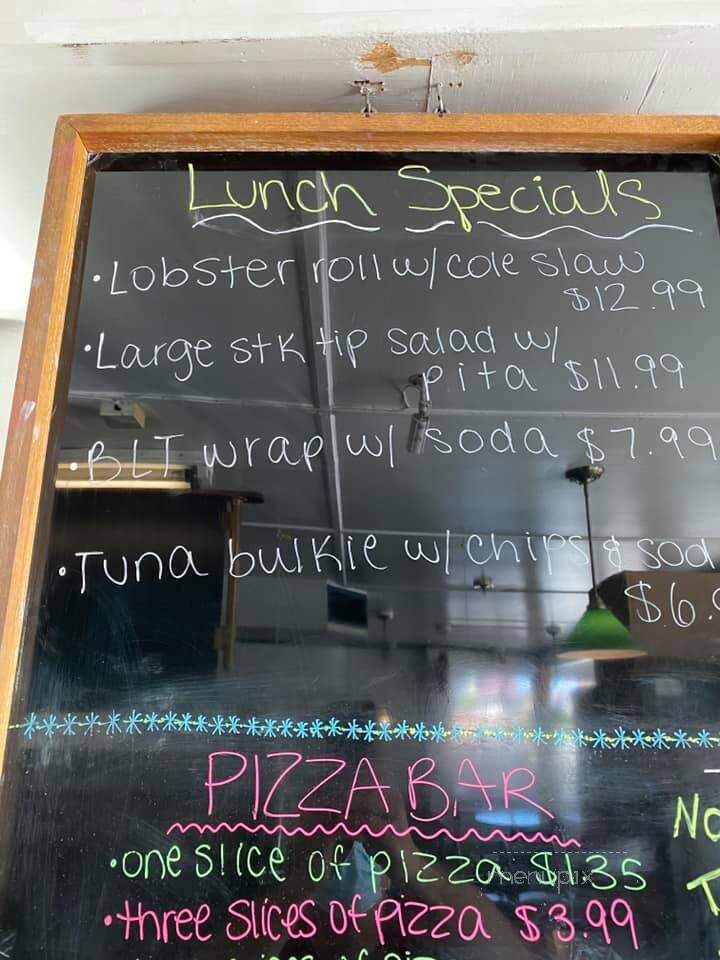 Lunch Specials
• Lobster roll w/ cole slaw
$12.99
• Large stk tip salad w/
pita $11.99
• BLT wrap w/ soda $7.99
• Tuna bulkie w/ chips & sod
$6.9
PIZZA BAR
• one slice of pizza $1.35
• three slices of pizza $3.99
No
T
menupix